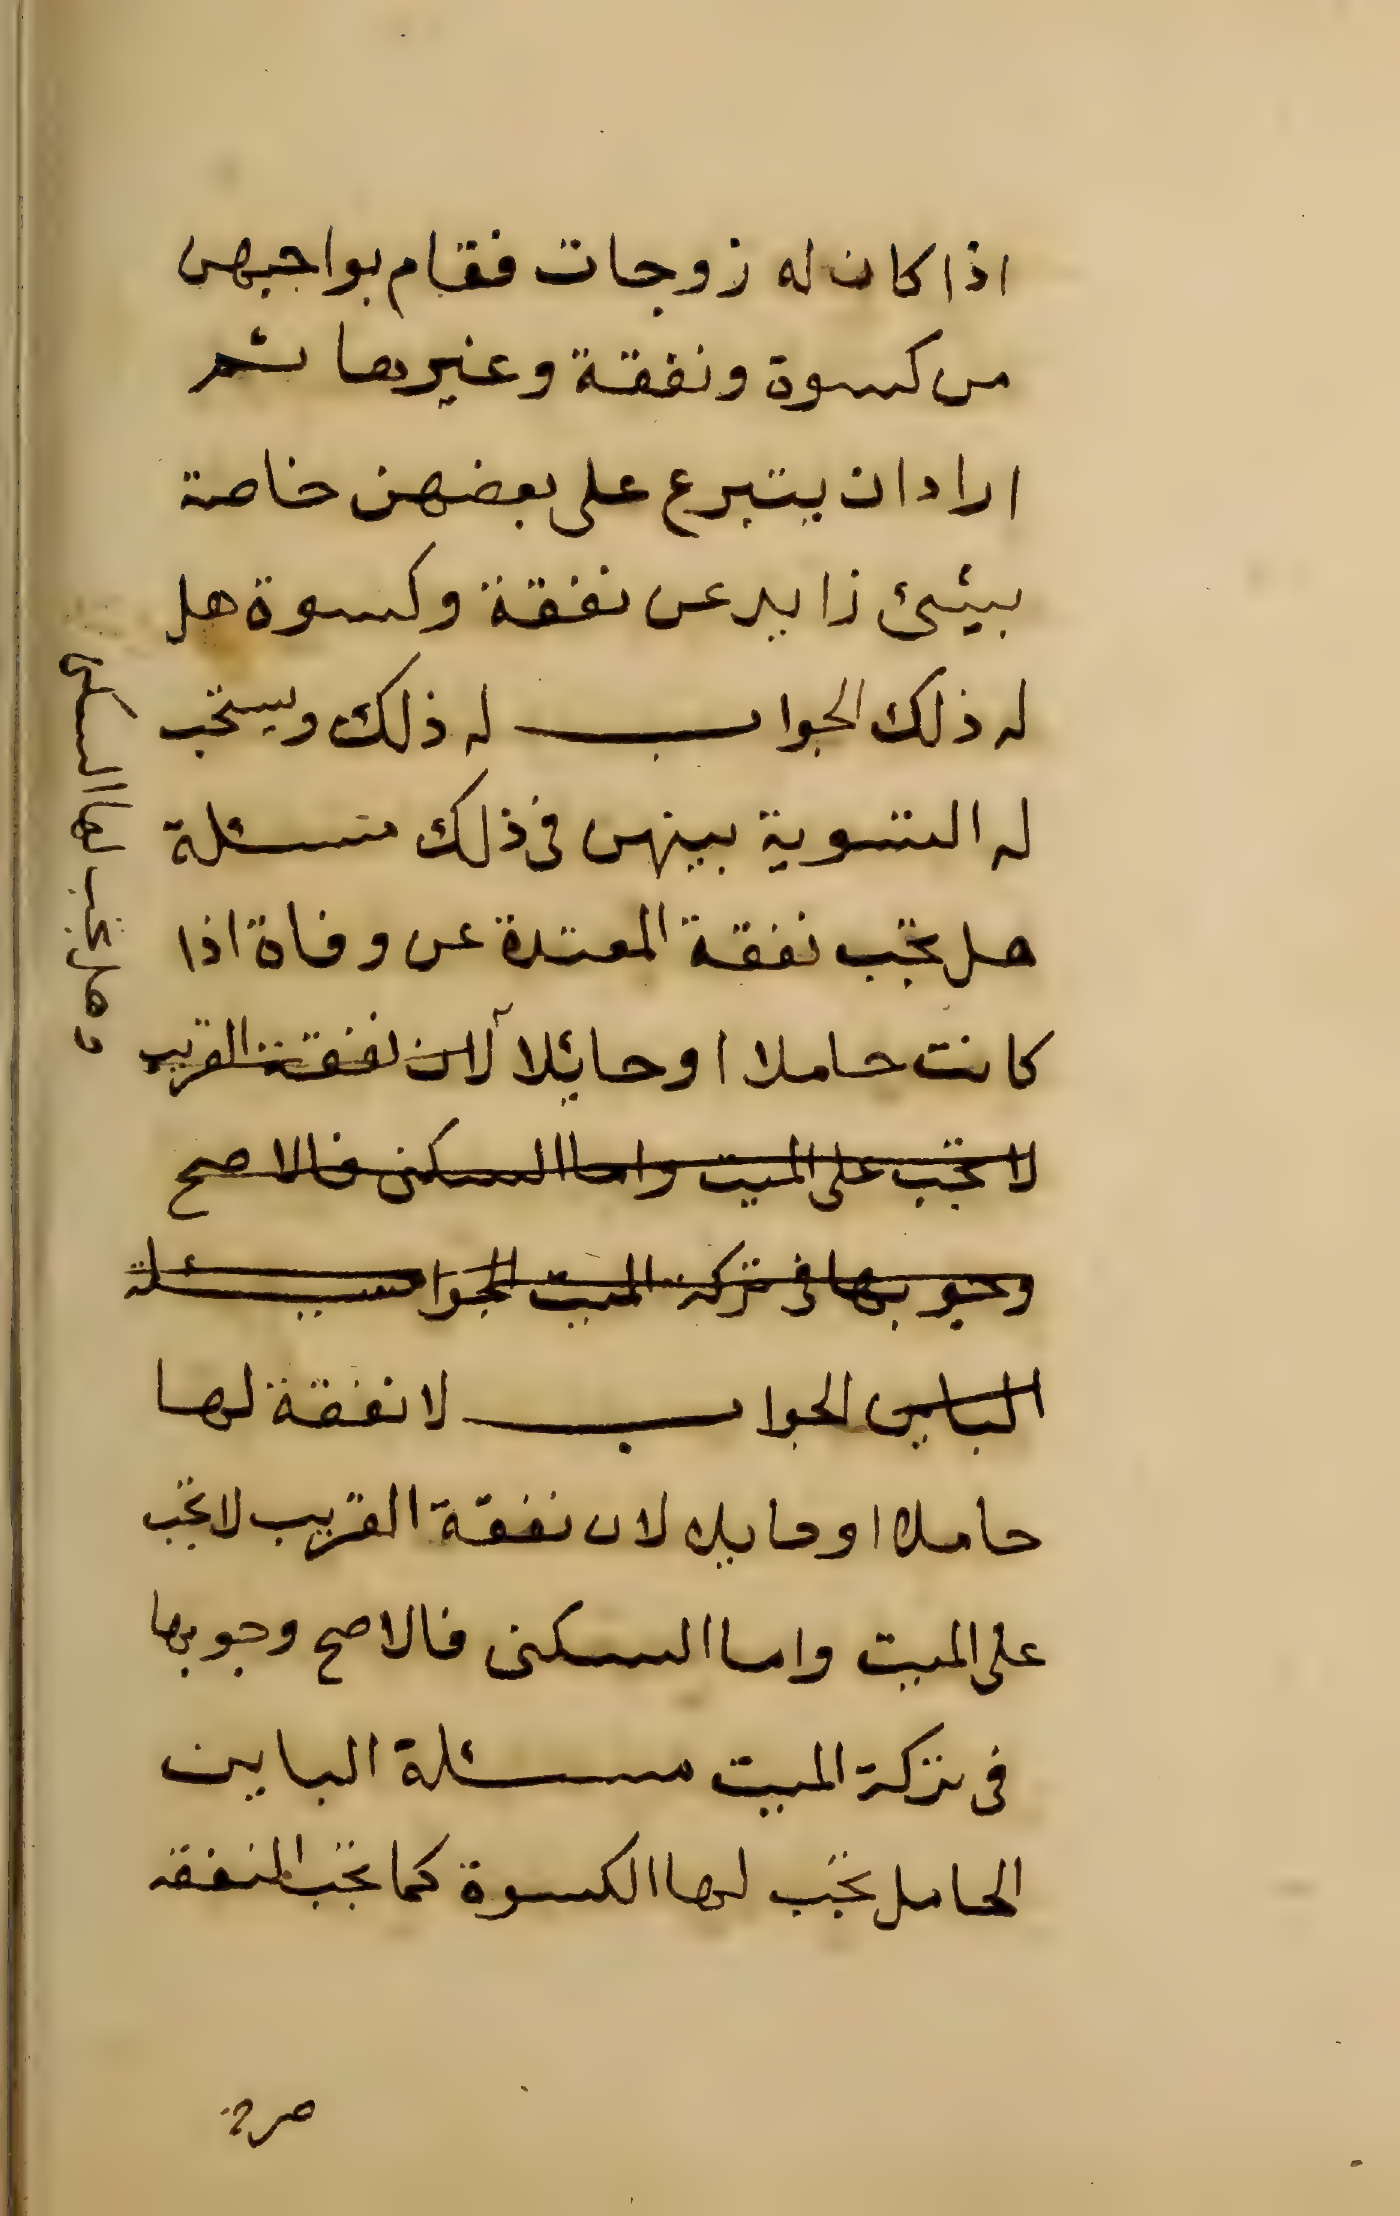 اذا كان له زوجات فقام بواجبهن
من كسوة ونفقة وغيرها ثم
اراد ان يتبرع على بعضهن خاصة
بيشئ زايد عن نفقة وكسوة هل
له ذلك الجواب له ذلك ويستحب
له التسوية بينهن في ذلك مسئلة
هل تجب نفقة المعتدة عن وفاة اذا
كانت حاملا او حائلا لان نفقة القريب
لا تجب على الميت واما السكنى فالاصح
وجوبها في تركة الميت الجواب مسئلة
الباين الجواب لا نفقة لها
حاملا او حايلا لان نفقة القريب لا تجب
على الميت واما السكنى فالاصح وجوبها
في تركة الميت مسئلة الباين
الحامل تجب لها الكسوة كما تجب النفقه
وهل تجب لها السكنى